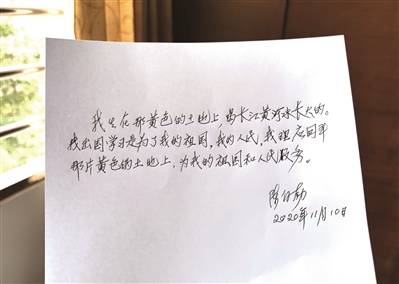 我生在那黄色的土地上，喝长江黄河水长大的。
我出国学习是为了我的祖国，我的人民，我理应回到
那片黄色的土地上，为我的祖国和人民服务。
2020年11月10日